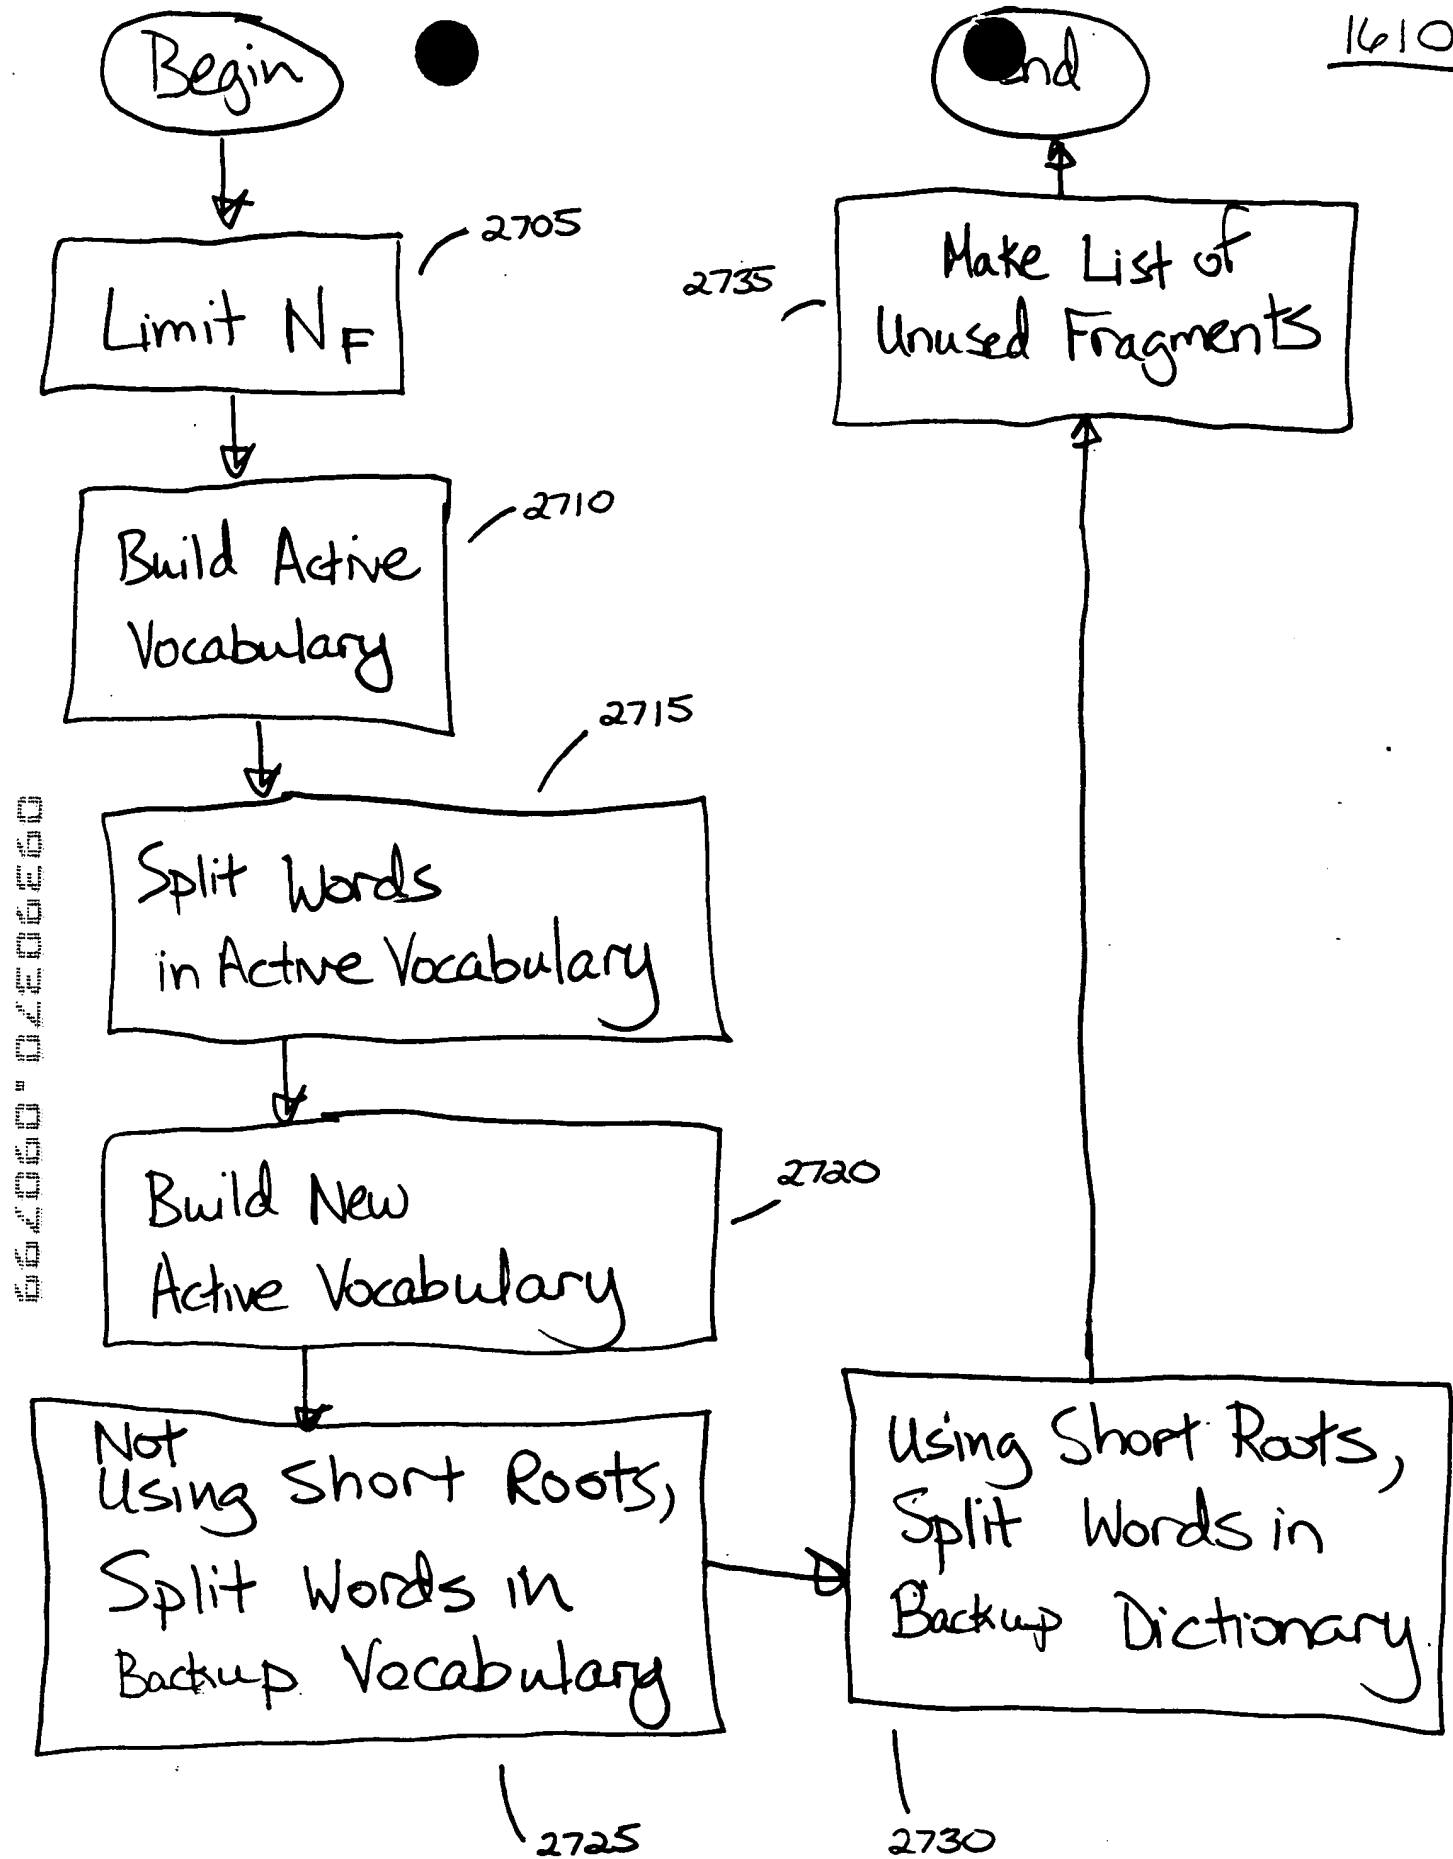 Begin
2705
Limit N_F
2710
Build Active
Vocabulary
2715
Split Words
in Active Vocabulary
2720
Build New
Active Vocabulary
Not
Using Short Roots,
Split Words in
Backup Vocabulary
2725
Using Short Roots,
Split Words in
Backup Dictionary
2730
2735
Make List of
Unused Fragments
nd
1610